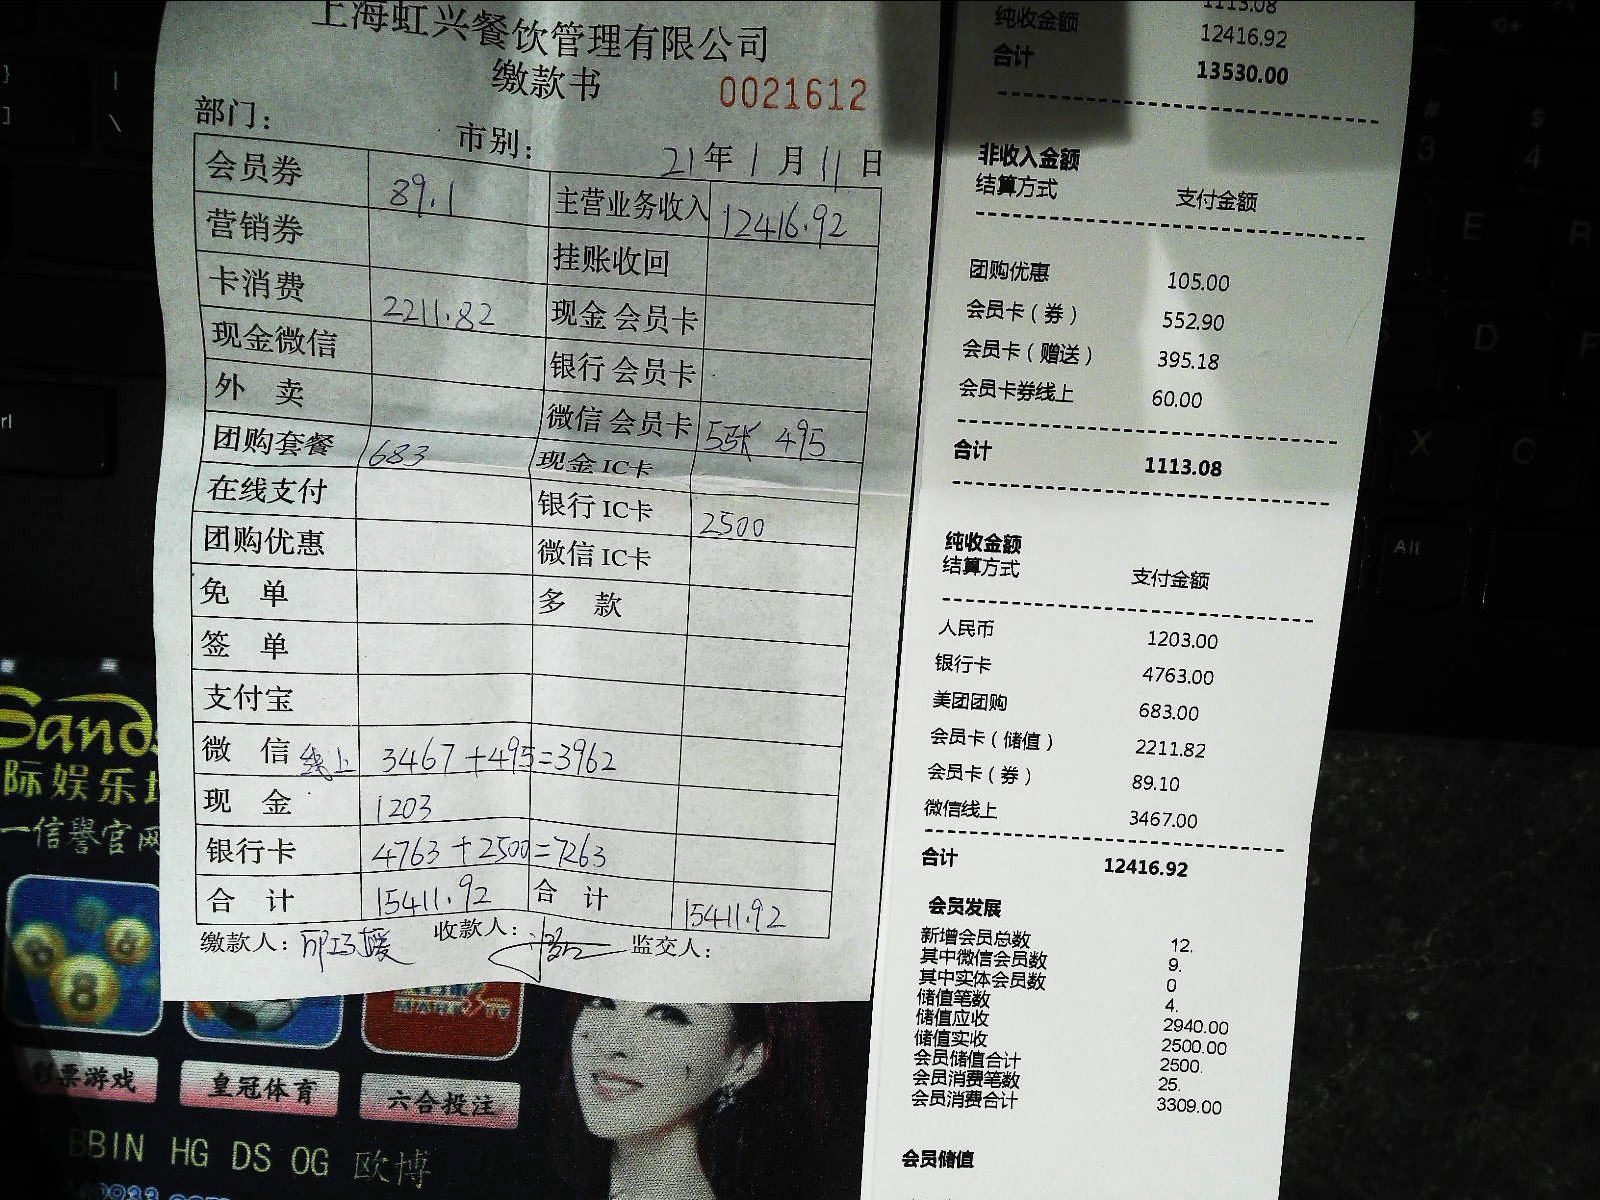 上海虹兴餐饮管理有限公司
缴款书
0021612
部门：
市别：
21年1月11日
会员券 89.1 主营业务收入 12416.92
营销券 挂账收回
卡消费 2211.82 现金 会员卡
现金微信 银行 会员卡
外 卖 微信 会员卡 55张 495
团购套餐 683 现金 IC卡
在线支付 银行 IC卡 2500
团购优惠 微信 IC卡
免 单 多 款
签 单
支付宝
微 信 线上 3467+495=3962
现 金 1203
银行卡 4763+2500=7263
合 计 15411.92 合 计 15411.92
缴款人： 收款人： 监交人：
1113.08
纯收金额 12416.92
合计 13530.00
非收入金额
结算方式 支付金额
团购优惠 105.00
会员卡（券） 552.90
会员卡（赠送） 395.18
会员卡券线上 60.00
合计 1113.08
纯收金额
结算方式 支付金额
人民币 1203.00
银行卡 4763.00
美团团购 683.00
会员卡（储值） 2211.82
会员卡（券） 89.10
微信线上 3467.00
合计 12416.92
会员发展
新增会员总数 12.
其中微信会员数 9.
其中实体会员数 0
储值笔数 4.
储值应收 2940.00
储值实收 2500.00
会员储值合计 2500.
会员消费笔数 25.
会员消费合计 3309.00
会员储值
Sands
际娱乐
一信誉官网
彩票游戏
皇冠体育
六合投注
BBIN HG DS OG 欧博
}
]
|
\
#
3
$
4
E
R
D
F
X
C
Alt